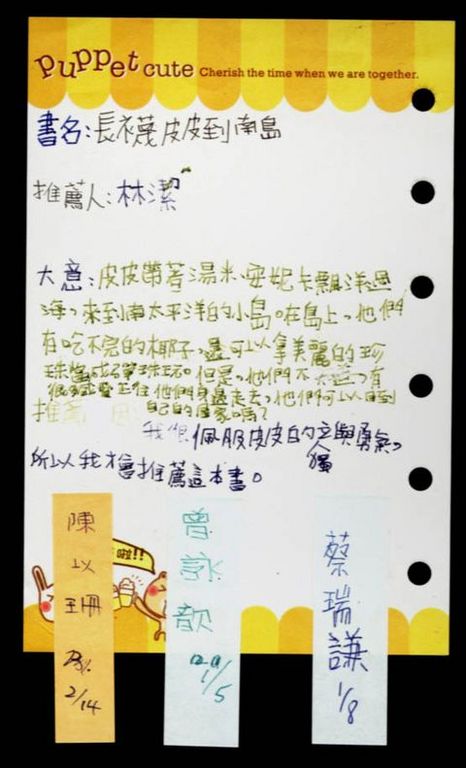 puppet cute Cherish the time when we are together.
書名:長襪皮皮到南島
推薦人:林潔
大意:皮皮帶著湯米、安妮卡飄洋過
海,來到南太平洋的小島。在島上,他們
有吃不完的椰子,還可以拿美麗的珍
珠當成彈珠玩。但是,他們不知道,有
他們身邊走去,他們可以回到
自己的居家嗎?
推薦 因:
我很佩服皮皮的獨立與勇氣,
所以我才會推薦這本書。
啦!!
陳
以
珊
2/14
曾
詠
歆
1/5
蔡
瑞
謙
1/8